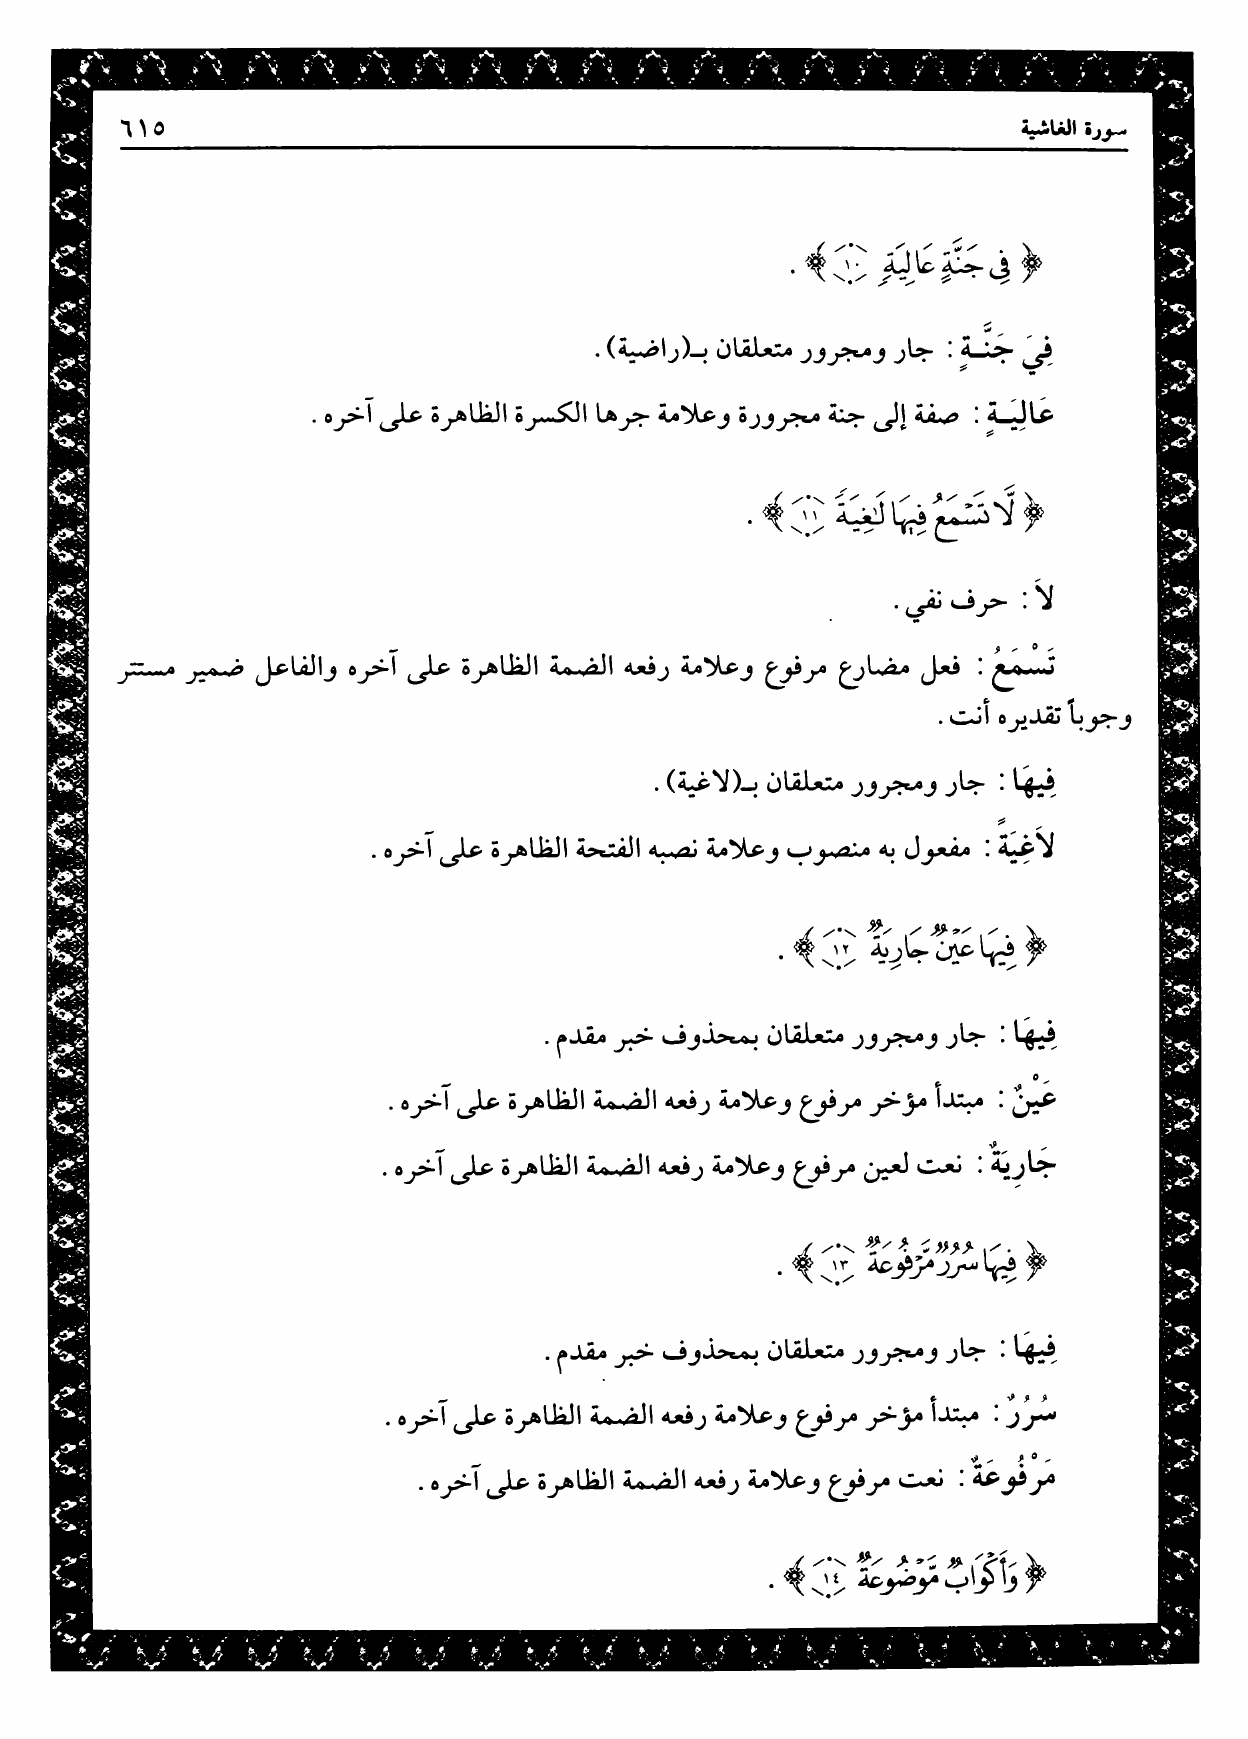 سورة الغاشية ٦١٥
﴿ فِي جَنَّةٍ عَالِيَةٍ ١٠ ﴾ .
فِيَ جَنَّـةٍ : جار ومجرور متعلقان بـ(راضية) .
عَالِيَـةٍ : صفة إلى جنة مجرورة وعلامة جرها الكسرة الظاهرة على آخره .
﴿ لَّا تَسْمَعُ فِيهَا لَٰغِيَةً ١١ ﴾ .
لاَ : حرف نفي .
تَسْمَعُ : فعل مضارع مرفوع وعلامة رفعه الضمة الظاهرة على آخره والفاعل ضمير مستتر
وجوباً تقديره أنت .
فِيهَا : جار ومجرور متعلقان بـ(لاغية) .
لاَغِيَةً : مفعول به منصوب وعلامة نصبه الفتحة الظاهرة على آخره .
﴿ فِيهَا عَيْنٌ جَارِيَةٌ ١٢ ﴾ .
فِيهَا : جار ومجرور متعلقان بمحذوف خبر مقدم .
عَيْنٌ : مبتدأ مؤخر مرفوع وعلامة رفعه الضمة الظاهرة على آخره .
جَارِيَةٌ : نعت لعين مرفوع وعلامة رفعه الضمة الظاهرة على آخره .
﴿ فِيهَا سُرُرٌ مَّرْفُوعَةٌ ١٣ ﴾ .
فِيهَا : جار ومجرور متعلقان بمحذوف خبر مقدم .
سُرُرٌ : مبتدأ مؤخر مرفوع وعلامة رفعه الضمة الظاهرة على آخره .
مَرْفُوعَةٌ : نعت مرفوع وعلامة رفعه الضمة الظاهرة على آخره .
﴿ وَأَكْوَابٌ مَّوْضُوعَةٌ ١٤ ﴾ .